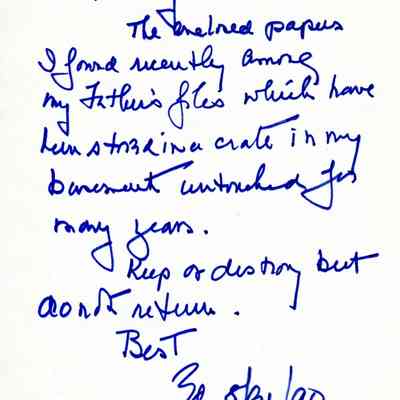 The enclosed papers
I found recently among
my Father's files which have
been stored in a crate in my
basement untouched for
many years.
Keep or destroy but
do not return.
Best